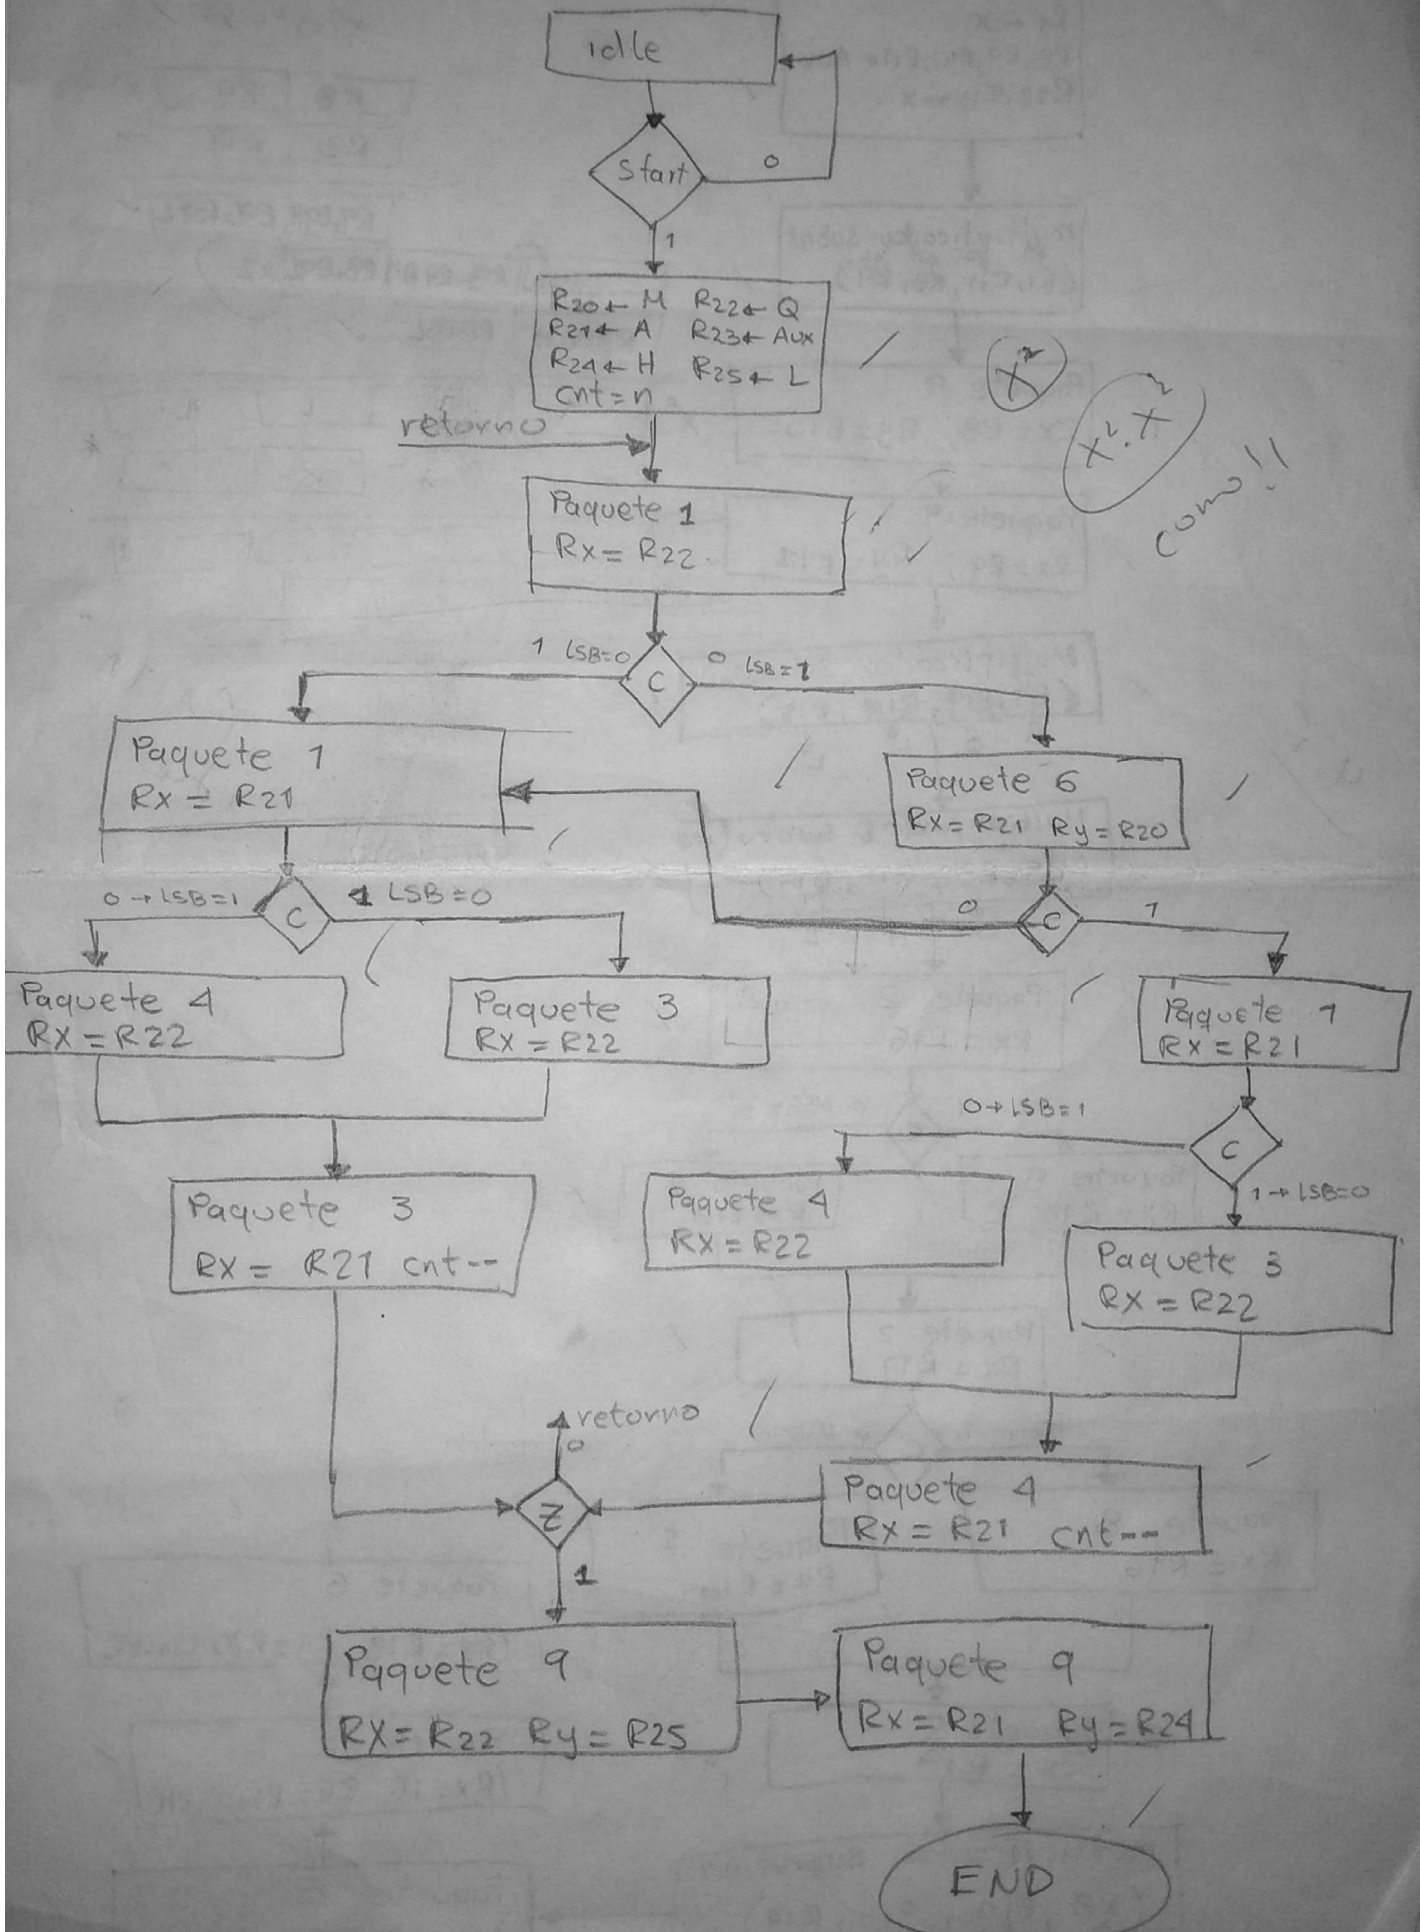 idle
Start
0
1
R20← M R22← Q
R21← A R23← Aux
R24← H R25← L
cnt=n
retorno
X²
X².X²
como!!
Paquete 1
Rx= R22
1 LSB=0
0 LSB=1
C
Paquete 1
Rx = R21
Paquete 6
Rx=R21 Ry=R20
0→LSB=1
C
1 LSB=0
0
C
1
Paquete 4
Rx=R22
Paquete 3
Rx=R22
Paquete 1
Rx=R21
0→LSB=1
C
1→LSB=0
Paquete 3
Rx= R21 cnt--
Paquete 4
Rx=R22
Paquete 3
Rx=R22
retorno
0
Z
1
Paquete 4
Rx=R21 cnt--
Paquete 9
Rx=R22 Ry=R25
Paquete 9
Rx=R21 Ry=R24
END